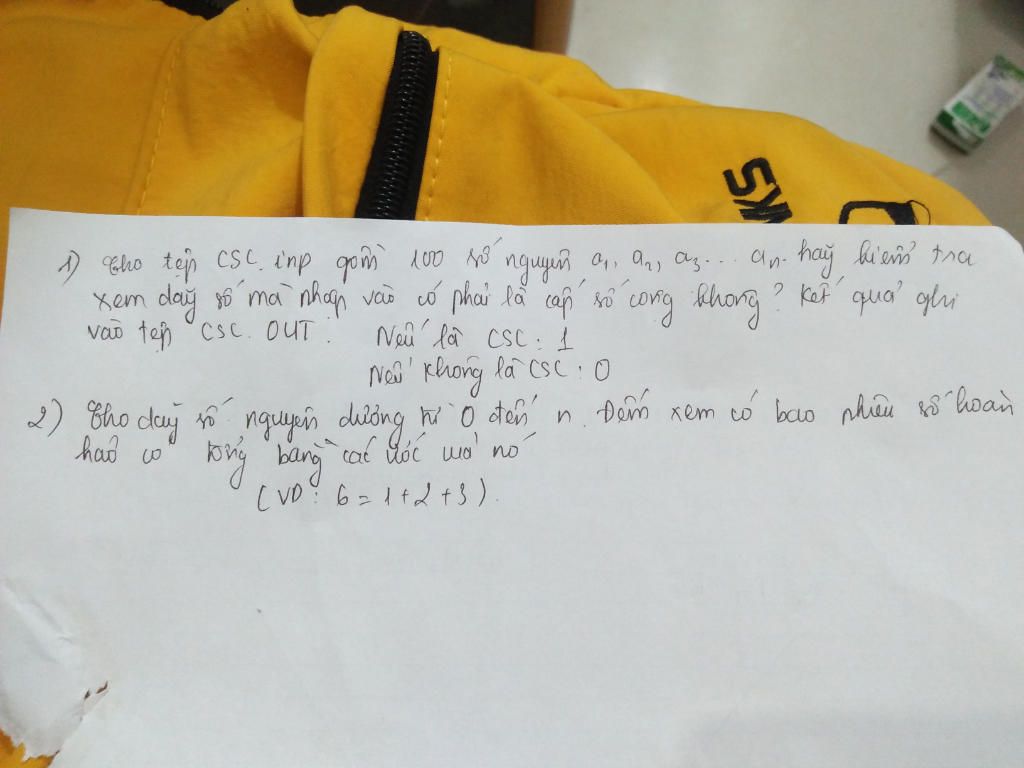 NKS
1) Cho tệp CSC.inp gồm 100 số nguyên a₁, a₂, a₃... aₙ. hãy kiểm tra
xem dãy số mà nhập vào có phải là cấp số cộng không? Kết quả ghi
vào tệp CSC.OUT: Nếu là CSC: 1
Nếu không là CSC: 0
2) Cho dãy số nguyên dương từ 0 đến n. Đếm xem có bao nhiêu số hoàn
hảo có tổng bằng các ước của nó
(VD: 6 = 1+2+3).